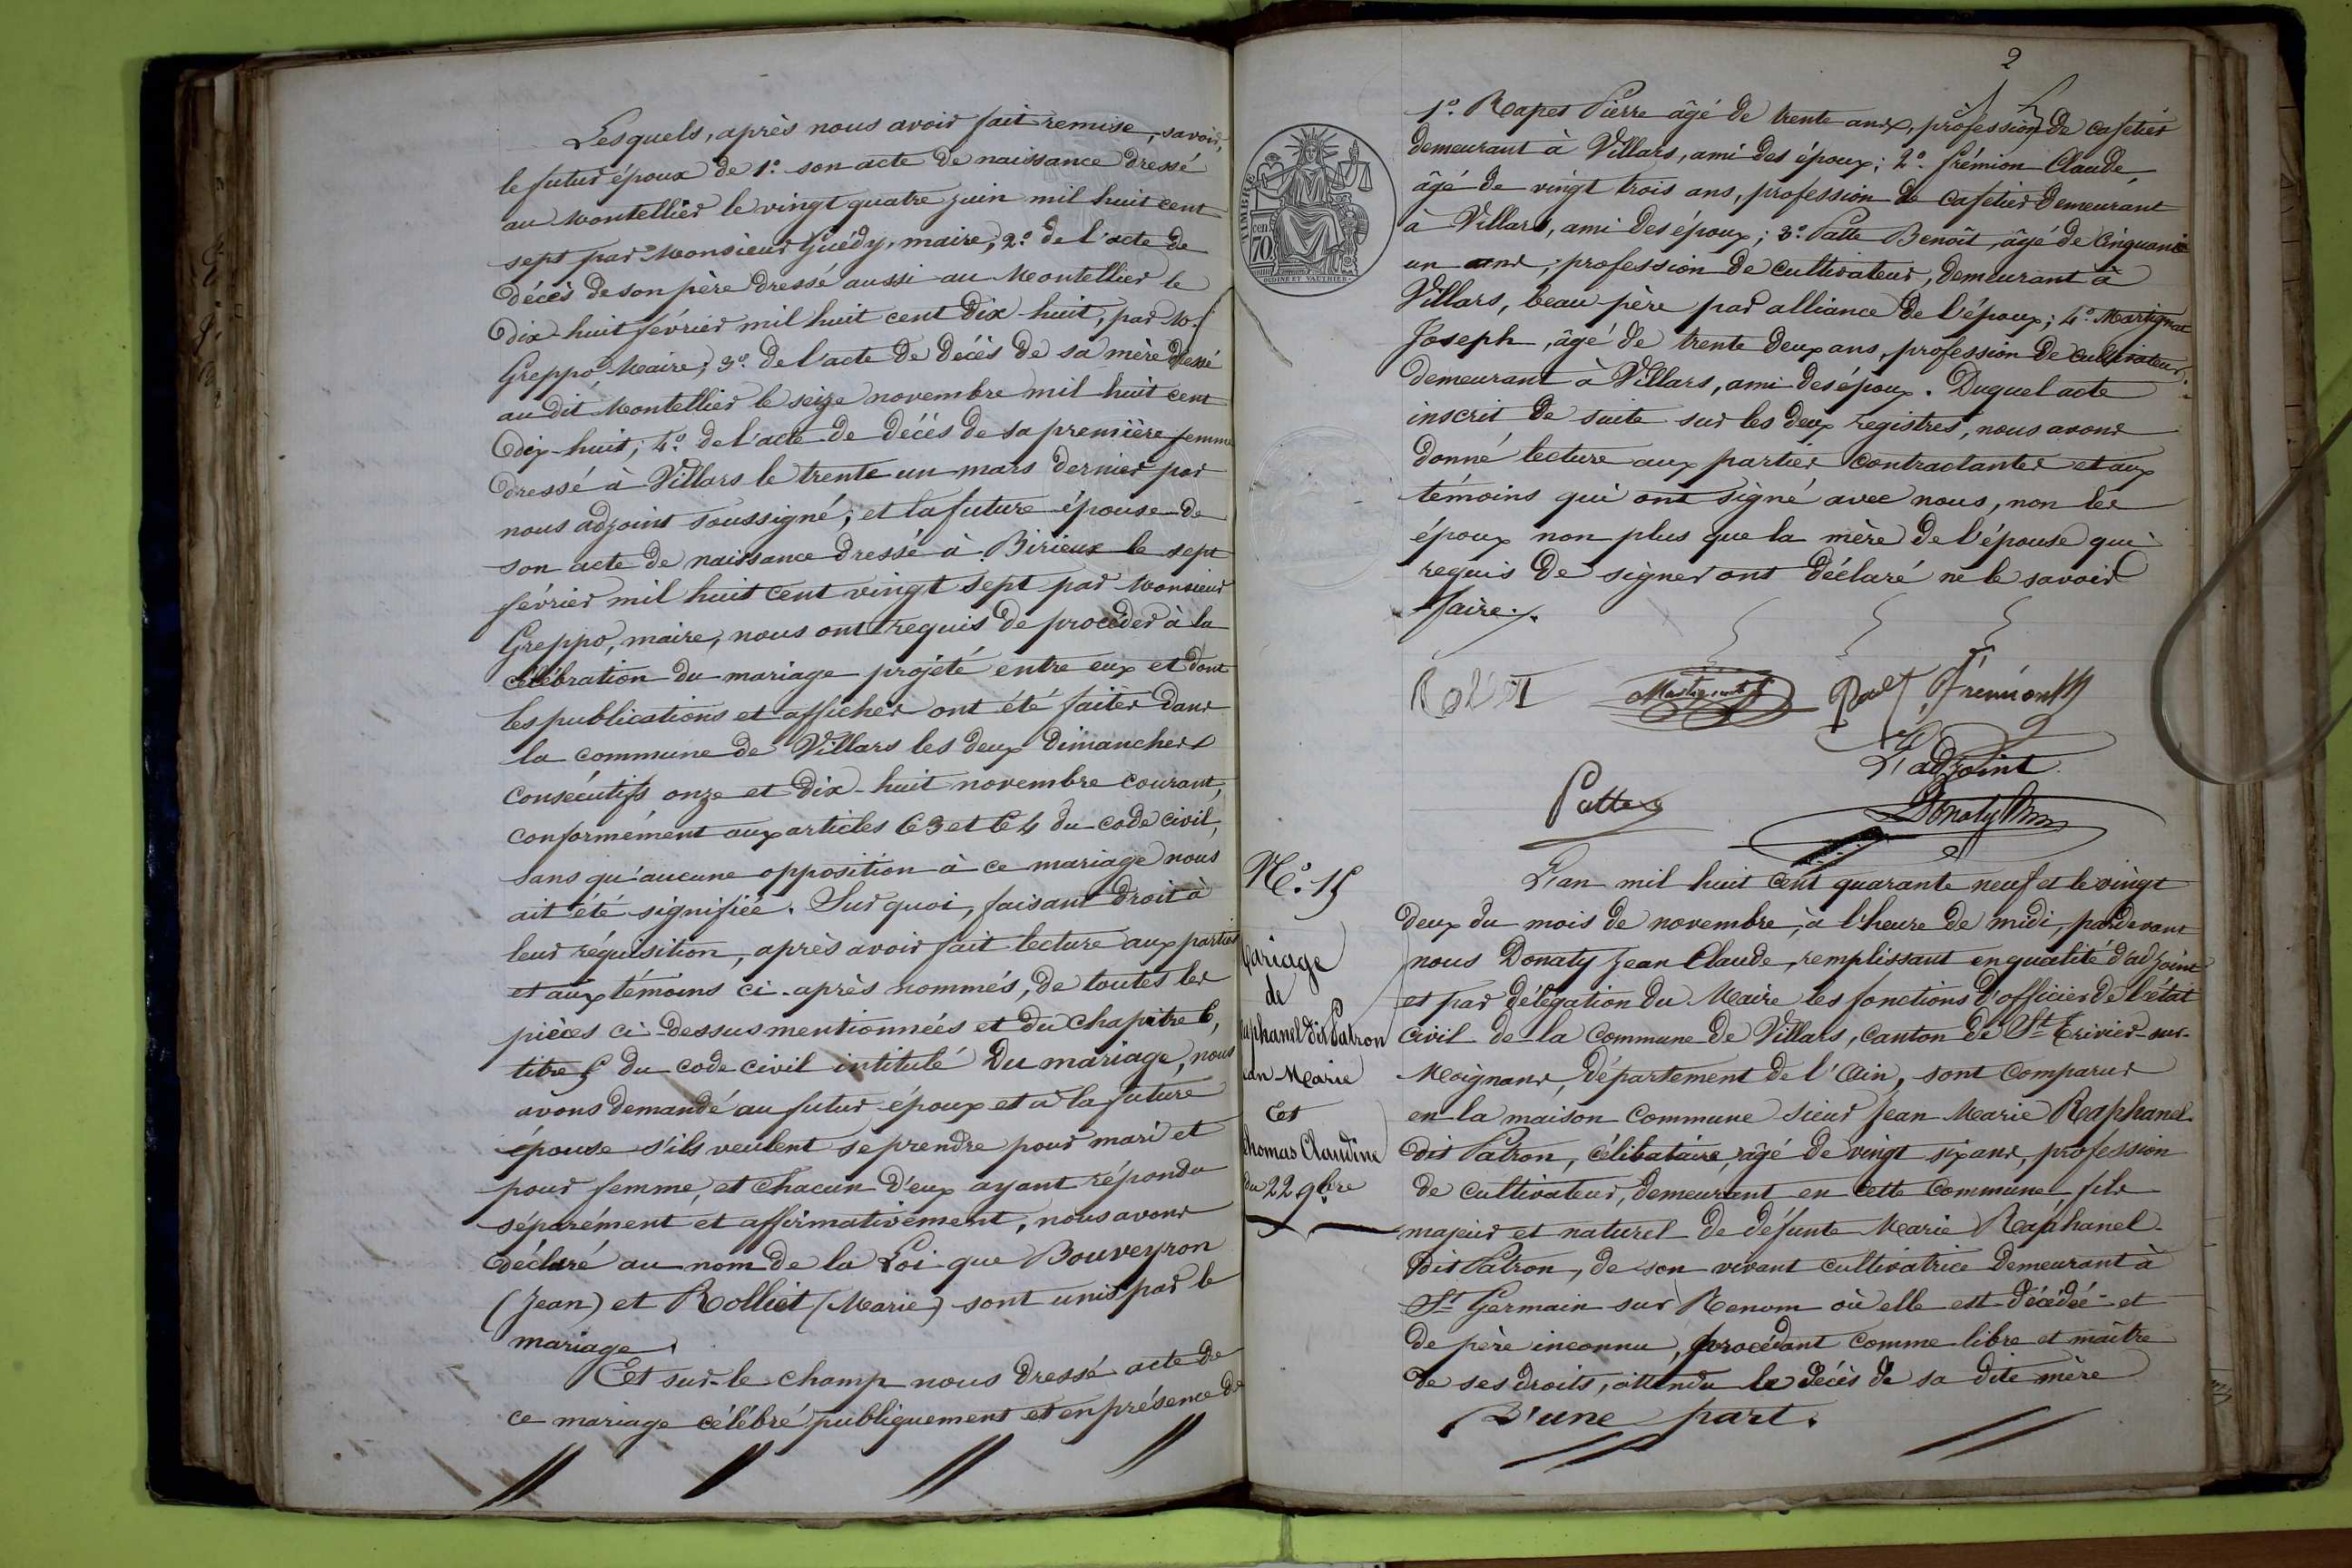 Lesquels, après nous avoir fait remise, savoir,
le futur époux de 1.o son acte de naissance dressé
au Montellier le vingt quatre juin mil huit cent
sept par Monsieur Guédy, maire, 2.o de l'acte de
décès de son père dressé aussi au Montellier le
Dix-huit février mil huit cent dix-huit, par M.
Greppo Maire; 3.o de l'acte de décès de sa mère dressé
au dit Montellier le seize novembre mil huit cent
Dix-huit; 4.o de l'acte de décès de sa première femme
dressé à Villars le trente un mars dernier par
nous adjoint soussigné; et la future épouse de
son acte de naissance dressé à Birieux le sept
février mil huit cent vingt sept par Monsieur
Greppo, maire, nous ont requis de procéder à la
célébration du mariage projeté entre eux et dont
les publications et affiches ont été faites dans
la commune de Villars les deux dimanches
consécutifs onze et dix-huit novembre courant,
conformément aux articles 63 et 64 du code civil,
sans qu'aucune opposition à ce mariage nous
ait été signifiée. Sur quoi, faisant droit à
leur réquisition, après avoir fait lecture aux parties
et aux témoins ci-après nommés, de toutes les
pièces ci-dessus mentionnées et du chapitre 6,
titre 5 du code civil intitulé Du mariage, nous
avons demandé au futur époux et à la future
épouse s'ils veulent se prendre pour mari et
pour femme, et chacun d'eux ayant répondu
séparément et affirmativement, nous avons
déclaré au nom de la Loi que Bouveyron
(Jean) et Rolliet (Marie) sont unis par le
mariage.
Et sur-le-champ nous dressé acte de
ce mariage célébré publiquement et en présence de
2
1.o Rapet Pierre âgé de trente ans, profession de cafetier
demeurant à Villars, ami des époux; 2.o frémion Claude,
âgé de vingt trois ans, profession de cafetier demeurant
à Villars, ami des époux; 3.o Patte Benoît, âgé de Cinquante
un ans, profession de cultivateur, demeurant à
Villars, beau-père par alliance de l'époux; 4.o Martignat
Joseph, âgé de trente deux ans, profession de cultivateur
demeurant à Villars, ami des époux. Duquel acte
inscrit de suite sur les deux registres, nous avons
donné lecture aux parties contractantes et aux
témoins qui ont signé avec nous, non les
époux non plus que la mère de l'épouse qui
requis de signer ont déclaré ne le savoir
faire.
Martignat frémion
L'adjoint
Patte Donaty
TIMBRE
70 cen
OUDINE ET VAUTHIER
N.o 15
Mariage
de
Raphanel dit Patron
Jean Marie
Et
Thomas Claudine
du 22 9bre
L'an mil huit cent quarante neuf et le vingt
deux du mois de novembre, à l'heure de midi, pardevant
nous Donaty Jean Claude, remplissant en qualité d'adjoint
et par délégation du Maire les fonctions d'officier de l'état
civil de la commune de Villars, canton de St Trivier-sur-
Moignans, département de l'Ain, sont comparus
en la maison commune sieur Jean Marie Raphanel
dit Patron, célibataire, âgé de vingt six ans, profession
de cultivateur, demeurant en cette commune, fils
majeur et naturel de défunte Marie Raphanel
dit Patron, de son vivant cultivatrice demeurant à
St Germain sur Renom où elle est décédée et
de père inconnu, procédant comme libre et maître
de ses droits, attendu le décès de sa dite mère
D'une part.